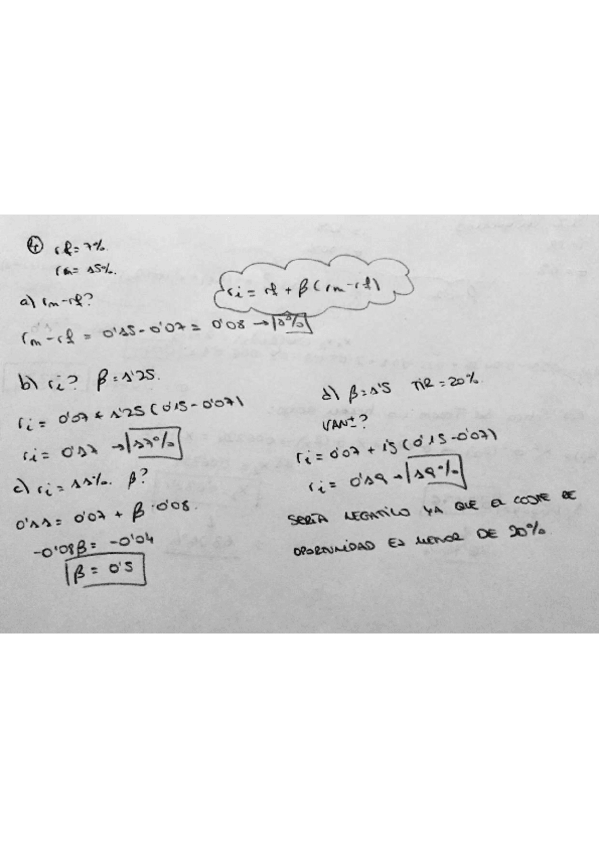 ④ rf = 7%.
rm = 15%.
ri = rf + β (rm - rf)
a) rm - rf?
rm - rf = 0'15 - 0'07 = 0'08 → 8%
b) ri? β = 1'25.
ri = 0'07 + 1'25 (0'15 - 0'07)
ri = 0'17 → 17%
c) ri = 11%. β?
0'11 = 0'07 + β · 0'08.
-0'08β = -0'04
β = 0'5
d) β = 1'5 TIR = 20%.
VAN±?
ri = 0'07 + 1'5 (0'15 - 0'07)
ri = 0'19 → 19%
SERÍA NEGATIVO YA QUE EL COSTE DE
OPORTUNIDAD ES MENOR DE 20%.